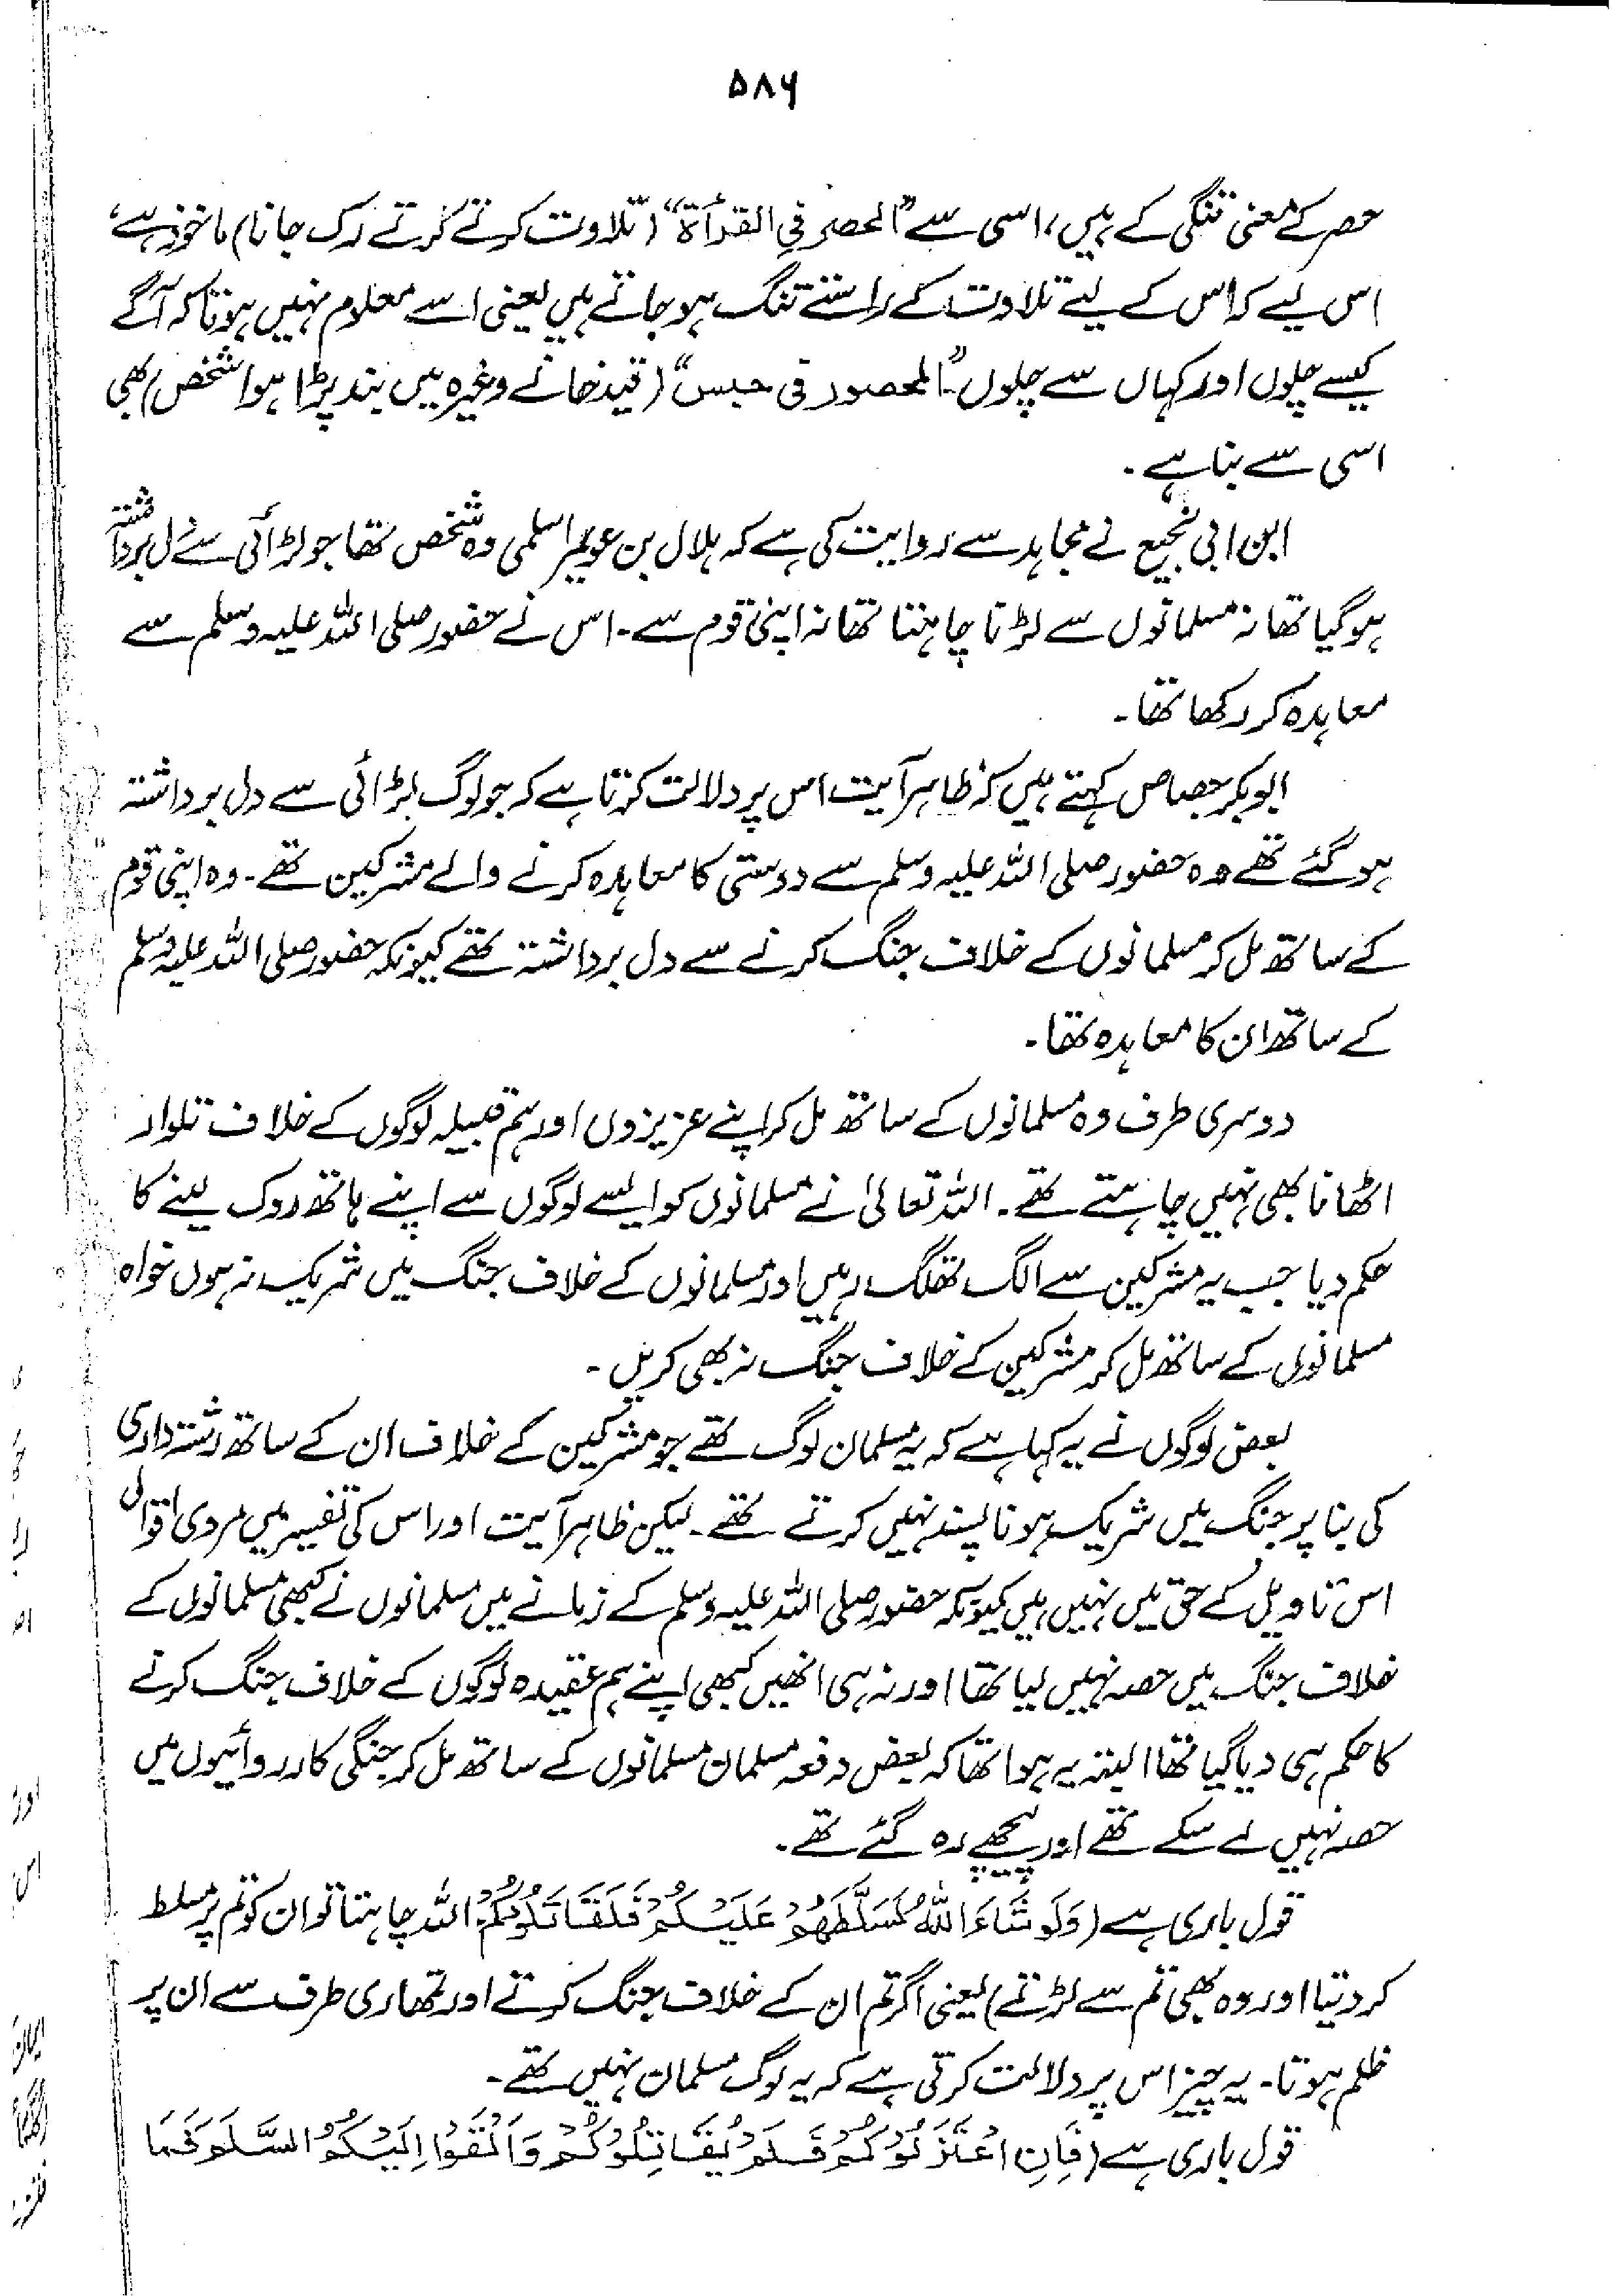 ۵۸۶
حصر کے معنی تنگی کے ہیں، اسی سے "الحصر فی القرأۃ" (تلاوت کرتے کرتے رک جانا) ماخوذ ہے،
اس لیے کہ اس کے لیے تلاوت کے راستے تنگ ہو جاتے ہیں یعنی اسے معلوم نہیں ہوتا کہ آگے
کیسے چلوں اور کہاں سے چلوں۔ "المحصور فی حبس" (قید خانے وغیرہ میں بند پڑا ہوا شخص) بھی
اسی سے بنا ہے۔
ابن ابی نجیح نے مجاہد سے روایت کی ہے کہ ہلال بن عویمر اسلمی وہ شخص تھا جو لڑائی سے دل برداشتہ
ہو گیا تھا نہ مسلمانوں سے لڑنا چاہتا تھا نہ اپنی قوم سے۔ اس نے حضور صلی اللہ علیہ وسلم سے
معاہدہ کر رکھا تھا۔
ابو بکر جصاص کہتے ہیں کہ ظاہر آیت اس پر دلالت کرتا ہے کہ جو لوگ لڑائی سے دل برداشتہ
ہو گئے تھے وہ حضور صلی اللہ علیہ وسلم سے دوستی کا معاہدہ کرنے والے مشرکین تھے۔ وہ اپنی قوم
کے ساتھ مل کر مسلمانوں کے خلاف جنگ کرنے سے دل برداشتہ تھے کیونکہ حضور صلی اللہ علیہ وسلم
کے ساتھ ان کا معاہدہ تھا۔
دوسری طرف وہ مسلمانوں کے ساتھ مل کر اپنے عزیزوں اور ہم قبیلہ لوگوں کے خلاف تلوار
اٹھانا بھی نہیں چاہتے تھے۔ اللہ تعالیٰ نے مسلمانوں کو ایسے لوگوں سے اپنے ہاتھ روک لینے کا
حکم دیا جب یہ مشرکین سے الگ تھلگ رہیں اور مسلمانوں کے خلاف جنگ میں شریک نہ ہوں خواہ
مسلمانوں کے ساتھ مل کر مشرکین کے خلاف جنگ نہ بھی کریں۔
بعض لوگوں نے یہ کہا ہے کہ یہ مسلمان لوگ تھے جو مشرکین کے خلاف ان کے ساتھ رشتہ داری
کی بنا پر جنگ میں شریک ہونا پسند نہیں کرتے تھے۔ لیکن ظاہر آیت اور اس کی تفسیر میں مروی اقوال
اس تاویل کے حق میں نہیں ہیں کیونکہ حضور صلی اللہ علیہ وسلم کے زمانے میں مسلمانوں نے کبھی مسلمانوں کے
خلاف جنگ میں حصہ نہیں لیا تھا اور نہ ہی انھیں کبھی اپنے ہم عقیدہ لوگوں کے خلاف جنگ کرنے
کا حکم ہی دیا گیا تھا البتہ یہ ہوا تھا کہ بعض دفعہ مسلمان مسلمانوں کے ساتھ مل کر جنگی کارروائیوں میں
حصہ نہیں لے سکے تھے اور پیچھے رہ گئے تھے۔
قول باری ہے (وَلَوْ شَاءَ اللّٰهُ لَسَلَّطَهُمْ عَلَيْكُمْ فَلَقَاتَلُوْكُمْ اللہ چاہتا تو ان کو تم پر مسلط
کر دیتا اور وہ بھی تم سے لڑتے) یعنی اگر تم ان کے خلاف جنگ کرتے اور تمھاری طرف سے ان پر
ظلم ہوتا۔ یہ چیز اس پر دلالت کرتی ہے کہ یہ لوگ مسلمان نہیں تھے۔
قول باری ہے (فَاِنِ اعْتَزَلُوْكُمْ فَلَمْ يُقَاتِلُوْكُمْ وَاَلْقَوْا اِلَيْكُمُ السَّلَمَ فَمَا